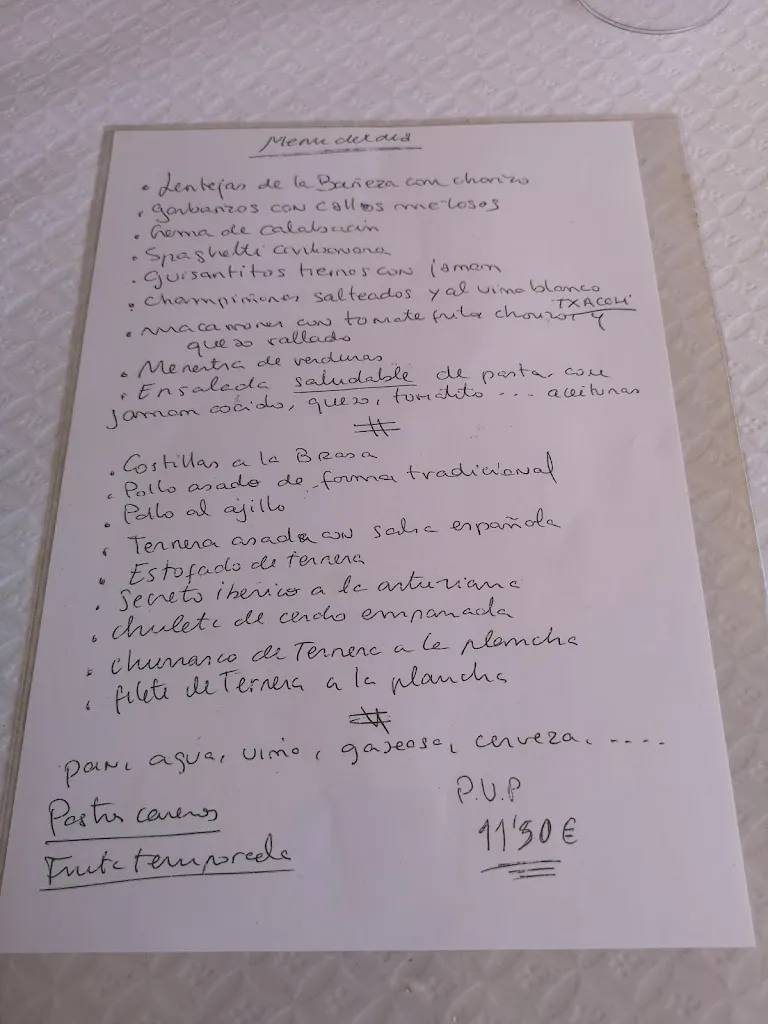 Menu del dia
• Lentejas de la Bañeza con chorizo
• garbanzos con callos melosos
• Crema de calabacin
• Spaghetti carbonara
• guisantitos tiernos con jamon
• champiñones salteados y al vino blanco
• macarrones con tomate frito chorizo y TXACOLI
queso rallado
• Menestra de verduras
• Ensalada saludable de pasta con
jamon cocido, queso, tomatito ... aceitunas
#
• Costillas a la Brasa
• Pollo asado de forma tradicional
• Pollo al ajillo
• Ternera asada con salsa española
• Estofado de ternera
• Secreto iberico a la asturiana
• chuleta de cerdo empanada
• churrasco de Ternera a la plancha
• filete de Ternera a la plancha
#
pan, agua, vino, gaseosa, cerveza, ....
Postres caseros
P.U.P
11'50 €
Fruta temporada